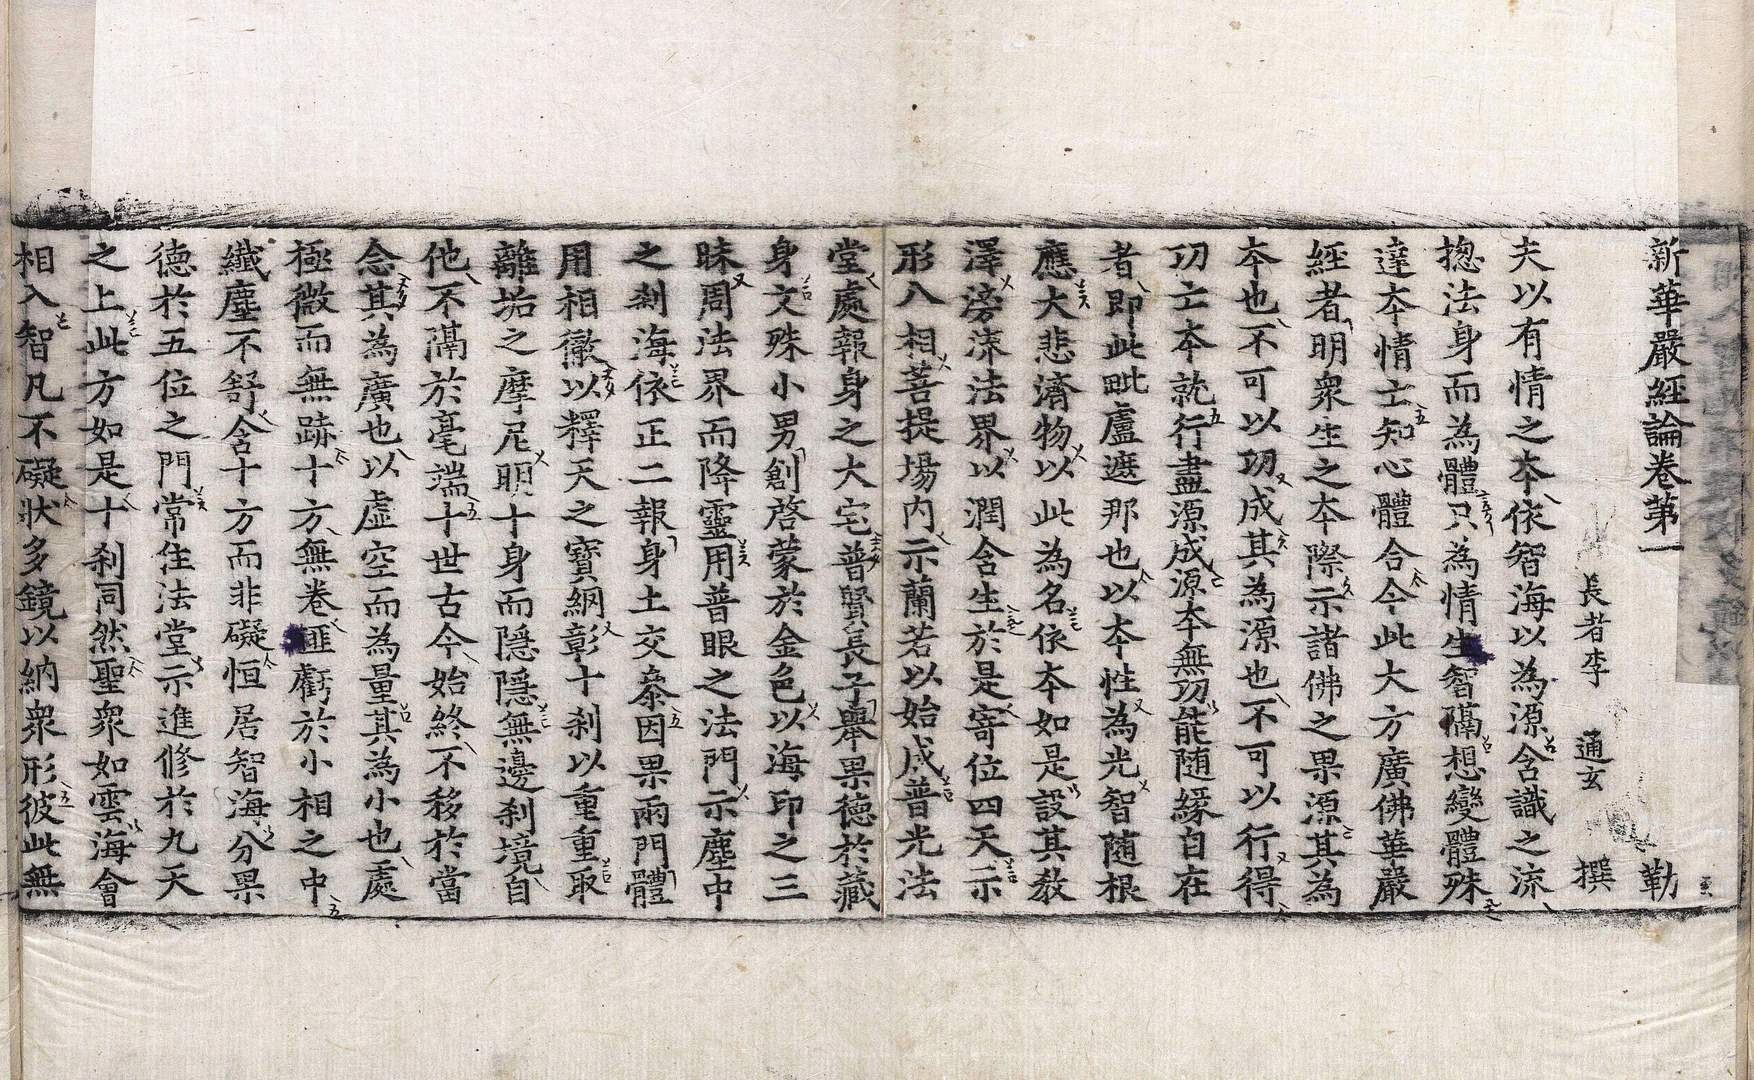 新華嚴經論卷第一　勒
長者李　通玄　撰
夫以有情之本依智海以為源含識之流
摠法身而為體只為情生智隔想變體殊
達本情亡知心體合今此大方廣佛華嚴
經者明衆生之本際示諸佛之果源其為
本也不可以功成其為源也不可以行得
功亡本就行盡源成源本無功能随緣自在
者即此毗盧遮那也以本性為光智随根
應大悲濟物以此為名依本如是設其教
澤滂流法界以潤含生於是寄位四天示
形八相菩提場内示蘭若以始成普光法
堂處報身之大宅普賢長子舉果德於藏
身文殊小男創啓蒙於金色以海印之三
昧周法界而降靈用普眼之法門示塵中
之刹海依正二報身土交叅因果兩門體
用相徹以釋天之寶網彰十刹以重重取
離垢之摩尼明十身而隱隱無邊刹境自
他不隔於毫端十世古今始終不移於當
念其為廣也以虛空而為量其為小也處
極微而無跡十方無卷匪虧於小相之中
纖塵不舒含十方而非礙恒居智海分果
德於五位之門常住法堂示進修於九天
之上此方如是十刹同然聖衆如雲海會
相入智凡不礙狀多鏡以納衆形彼此無